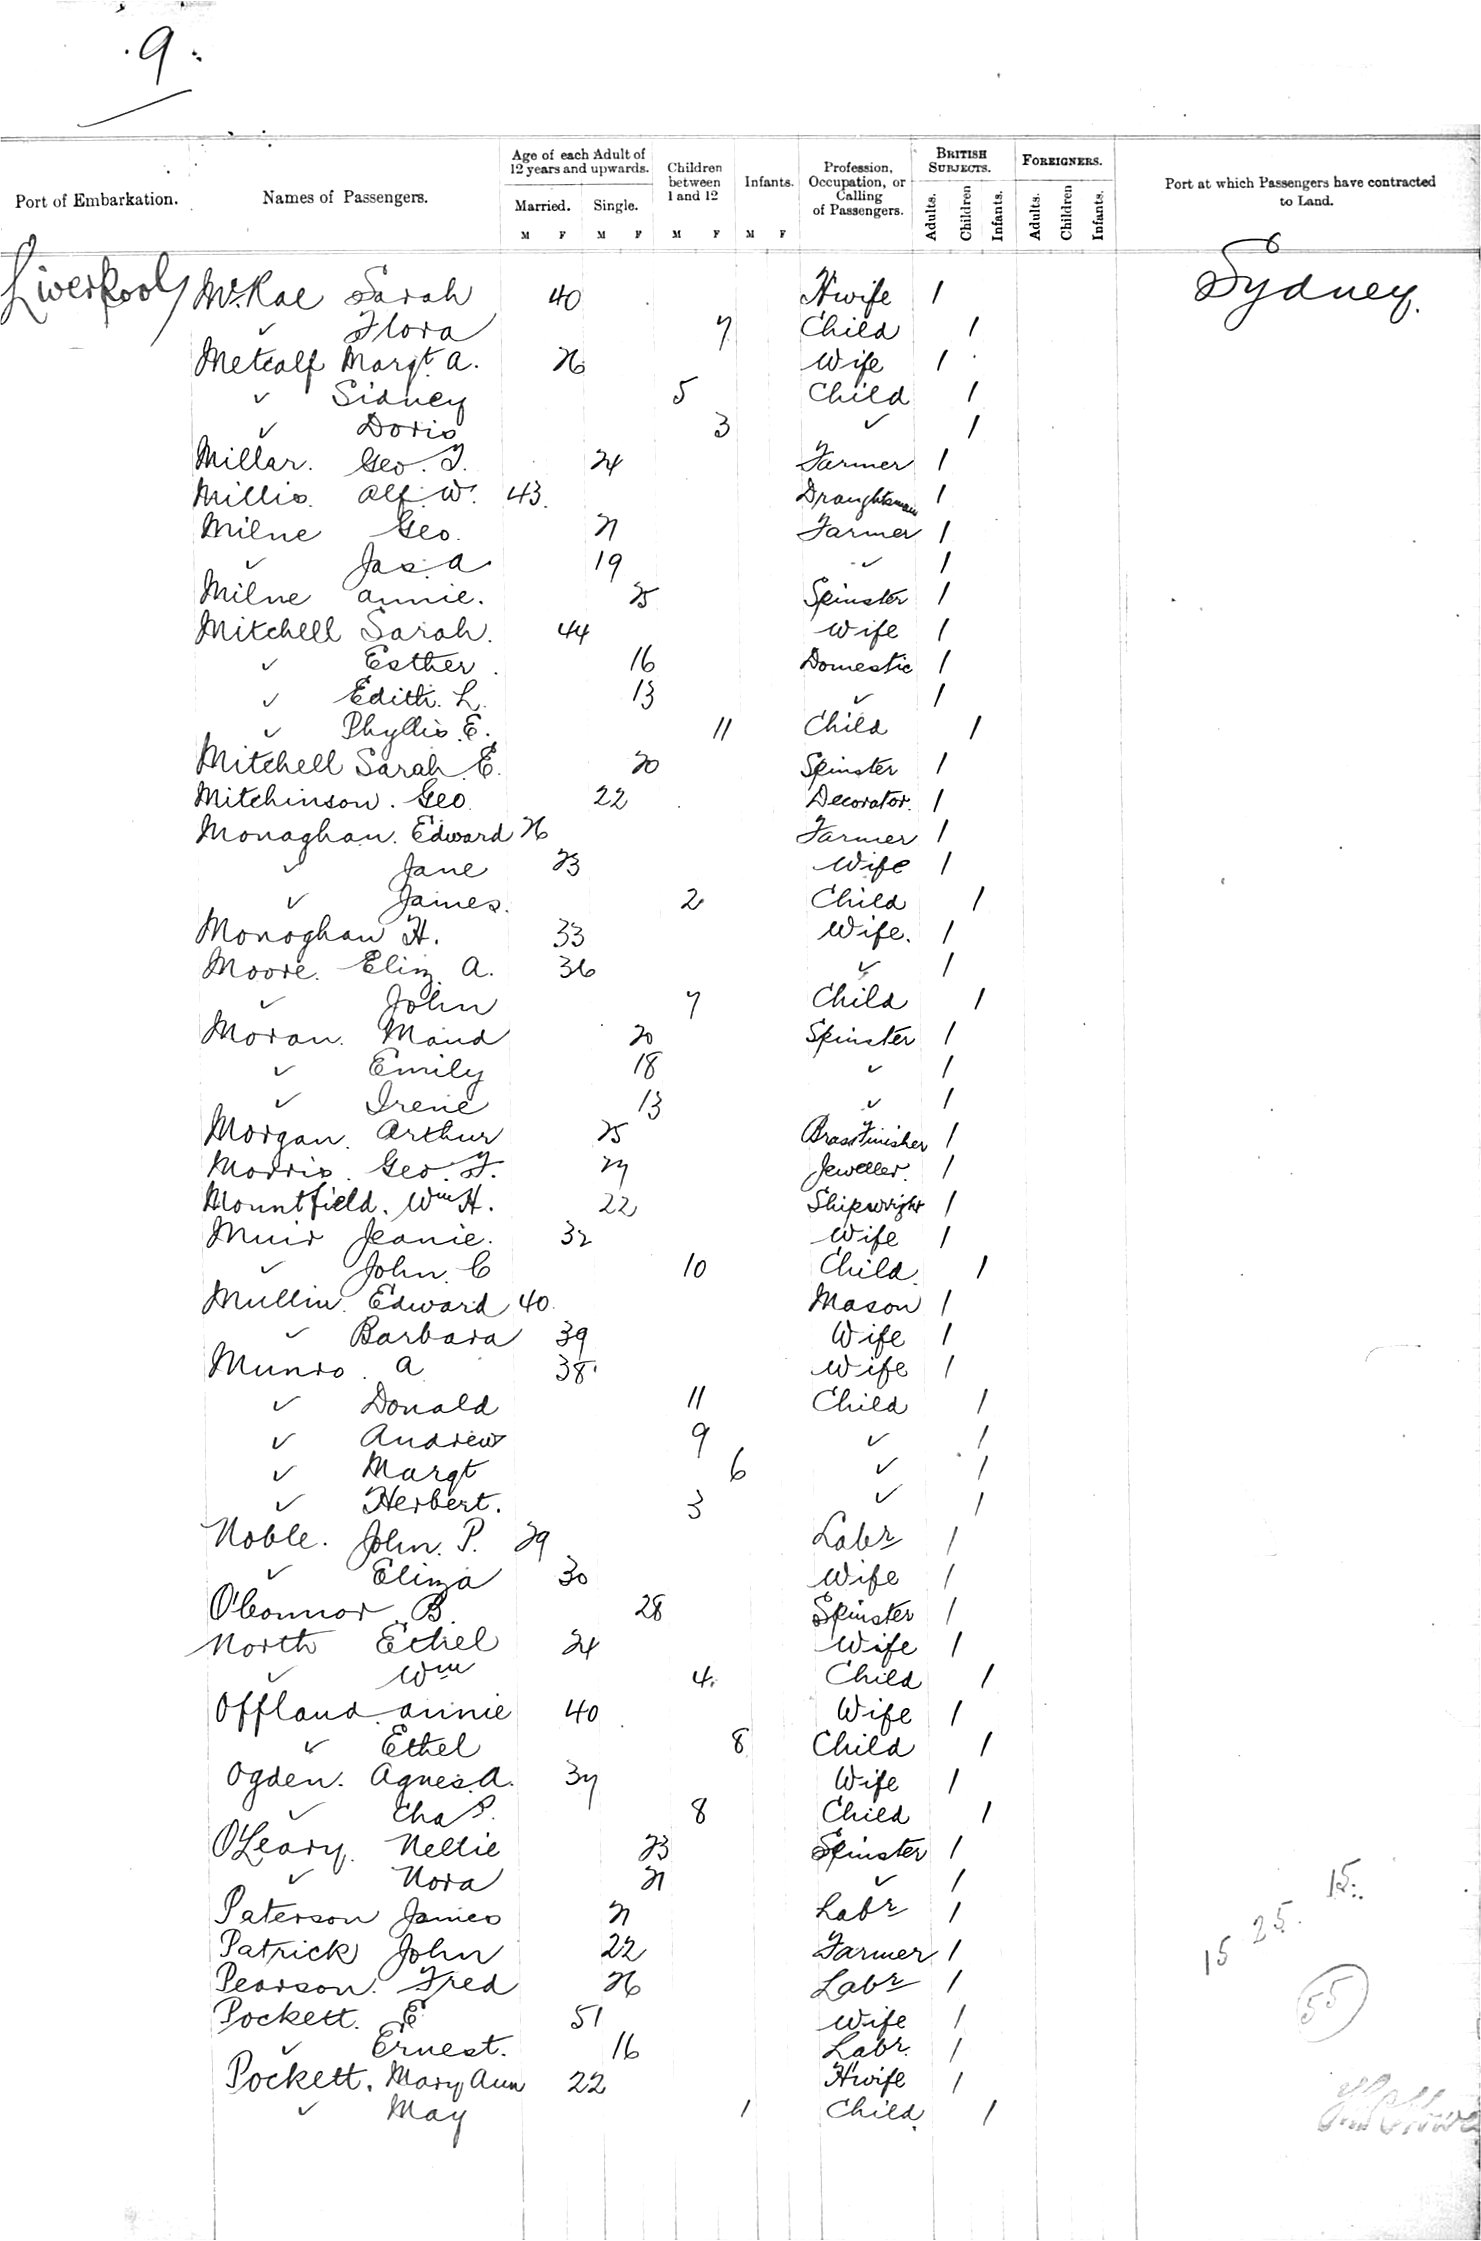 9
Port of Embarkation. Names of Passengers. Age of each Adult of 12 years and upwards. Married. Single. Children between 1 and 12 Infants. Profession, Occupation, or Calling of Passengers. BRITISH SUBJECTS. Adults. Children Infants. FOREIGNERS. Adults. Children Infants. Port at which Passengers have contracted to Land.
M F M F M F M F
Liverpool McRae Sarah 40 H'wife 1 Sydney.
✓ Flora 7 Child 1
Metcalf Margt A. 26 Wife 1
✓ Sidney 5 Child 1
✓ Doris 3 ✓ 1
Millar. Geo. T. 24 Farmer 1
Millis. Alf. W. 43. Draughtsman 1
Milne Geo. 21 Farmer 1
✓ Jas. A 19 ✓ 1
Milne Annie. 25 Spinster 1
Mitchell Sarah. 44 Wife 1
✓ Esther. 16 Domestic 1
✓ Edith. L. 13 ✓ 1
✓ Phyllis. E. 11 Child 1
Mitchell Sarah E. 20 Spinster 1
Mitchinson. Geo. 22 Decorator. 1
Monaghan. Edward 26 Farmer 1
✓ Jane 23 Wife 1
✓ James. 2 Child 1
Monoghan H. 33 Wife. 1
Moore. Eliz A. 36 ✓ 1
✓ John 7 Child 1
Moran. Maud 20 Spinster 1
✓ Emily 18 ✓ 1
✓ Irene 13 ✓ 1
Morgan. Arthur 25 Brass Finisher 1
Morris. Geo. F. 27 Jeweller. 1
Mountfield. Wm H. 22 Shipwright 1
Muir Jeanie. 32 Wife 1
✓ John. C 10 Child. 1
Mullin. Edward 40. Mason 1
✓ Barbara 39 Wife 1
Munro. A 38. Wife 1
✓ Donald 11 Child 1
✓ Andrew 9 ✓ 1
✓ Margt 6 ✓ 1
✓ Herbert. 3 ✓ 1
Noble. John. P. 29 Labr 1
✓ Eliza 30 Wife 1
O'Connor. B. 28 Spinster 1
North Ethel 24 Wife 1
✓ Wm 4. Child 1
Offland. Annie 40 Wife 1
✓ Ethel 8 Child 1
Ogden. Agnes. A. 37 Wife 1
✓ Cha P. 8 Child 1
O'Leary. Nellie 23 Spinster 1
✓ Nora 21 ✓ 1
Paterson James 21 Labr 1
Patrick John 22 Farmer 1
Pearson. Fred 26 Labr 1
Pockett. E 51 Wife 1
✓ Ernest. 16 Labr. 1
Pockett. Mary Ann 22 H'wife 1
✓ May 1 Child. 1
15 25. 15.
55